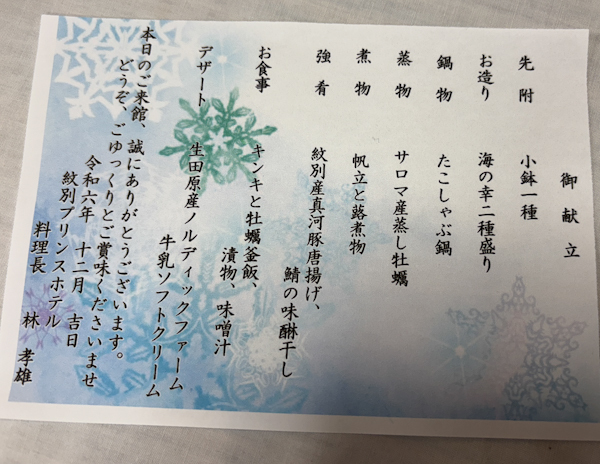 御献立
先附 小鉢一種
お造り 海の幸二種盛り
鍋物 たこしゃぶ鍋
蒸物 サロマ産蒸し牡蠣
煮物 帆立と蕗煮物
強肴 紋別産真河豚唐揚げ、
鯖の味醂干し
お食事 キンキと牡蠣釜飯、
漬物、味噌汁
デザート 生田原産ノルディックファーム
牛乳ソフトクリーム
本日のご来館、誠にありがとうございます。
どうぞ、ごゆっくりとご賞味くださいませ
令和六年 十二月 吉日
紋別プリンスホテル
料理長 林 孝雄